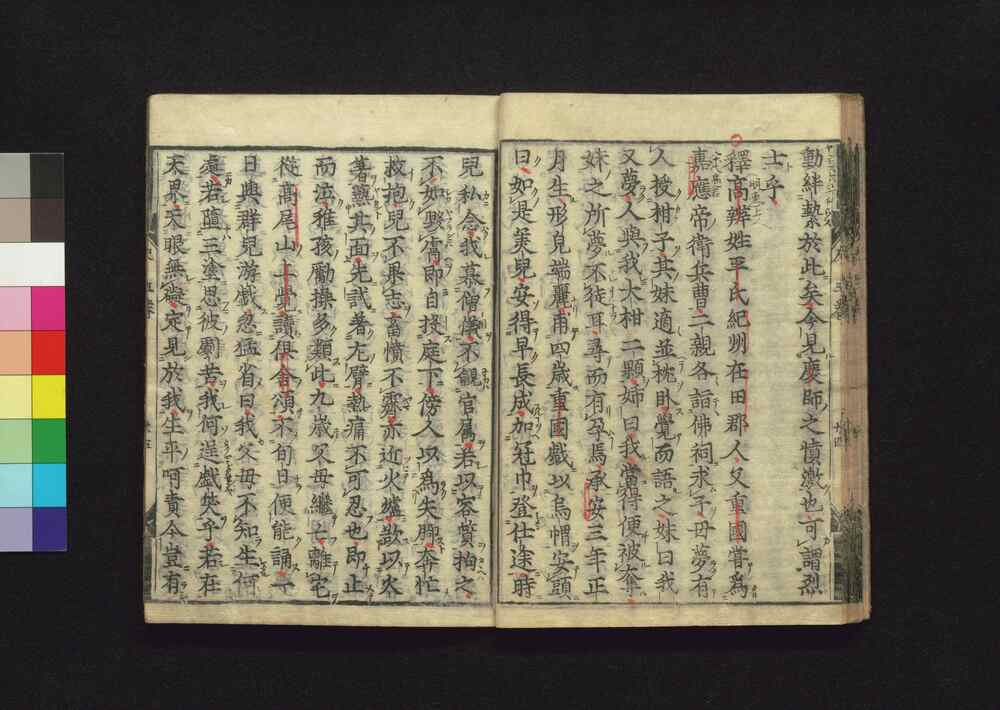 動絆縶於此矣今見慶師之憤激也可謂烈
士乎
釋高辨姓平氏紀州在田郡人父重國嘗爲
嘉應帝衛兵曹二親各詣佛祠求子母夢有
人授柑子其妹適並枕臥覺而語之妹曰我
又夢人與我大柑二顆姉曰我當得便被奪
妹之所夢不徒耳尋而有孕焉承安三年正
月生形皃端麗甫四歳重國戯以烏帽安頭
曰如是美兒安得早長成加冠巾登仕途時
兒私念我慕僧儀不覬官属若以容質拘之
不如毀
即自投庭下傍人以爲失脚奔忙
救抱兒不果志畜憤不霽亦近火爐欲以火
著其面先試著左臂熱痛不可忍也即止
而泣稚孩勵操多類此九歳父母繼亡離宅
從高尾山上覺讀倶舎頌不旬日便能誦
日與群兒游戲忽猛省曰我父母不知生何
處若墮三塗思彼劇苦我何逞戲笑乎若在
天界天眼無礙定見於我生平呵責今豈有